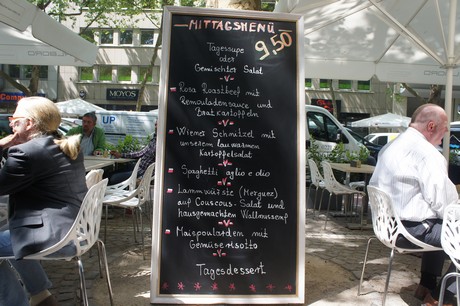 MITTAGSMENÜ
9,50
Tagessuppe
oder
Gemischter Salat
Rosa Roastbeef mit
Remouladensauce und
Bratkartoffeln
-V-
Wiener Schnitzel mit
unserem lauwarmen
Kartoffelsalat
-V-
Spaghetti aglio e olio
-V-
Lammwürste (Merguez)
auf Couscous-Salat und
hausgemachten Walnusssenf
-V-
Maispoularden mit
Gemüserisotto
Tagesdessert
MOYOS
UPC